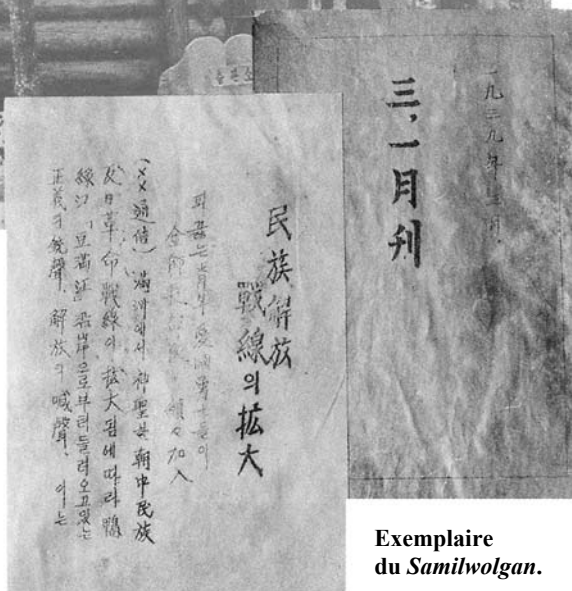 一九三九年三月.
三,一月刊
民族解放
戰線의 拡大
피끓는 青年愛國勇士들이
續々加入
(××通信) 滿洲에서 神聖한 朝中民族
反日革命戰線이 拡大됨에 따라 鴨
綠江, 豆滿江 沿岸으로부터 들려오고 있는
正義의 銃聲, 解放의 喊聲, 이는
Exemplaire
du Samilwolgan.